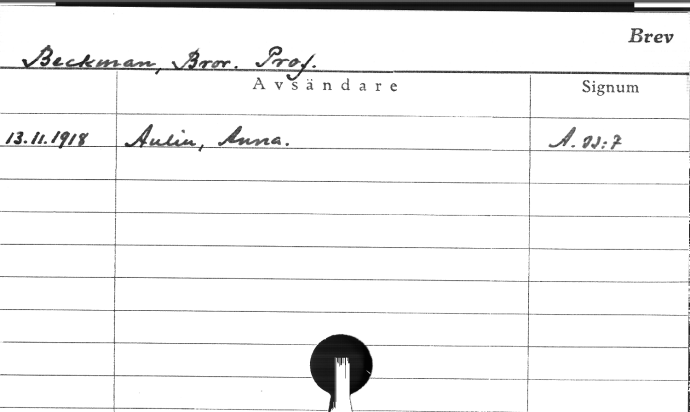 Brev
Beckman, Bror. Prof.
Avsändare Signum
13.11.1918 Aulin, Anna.